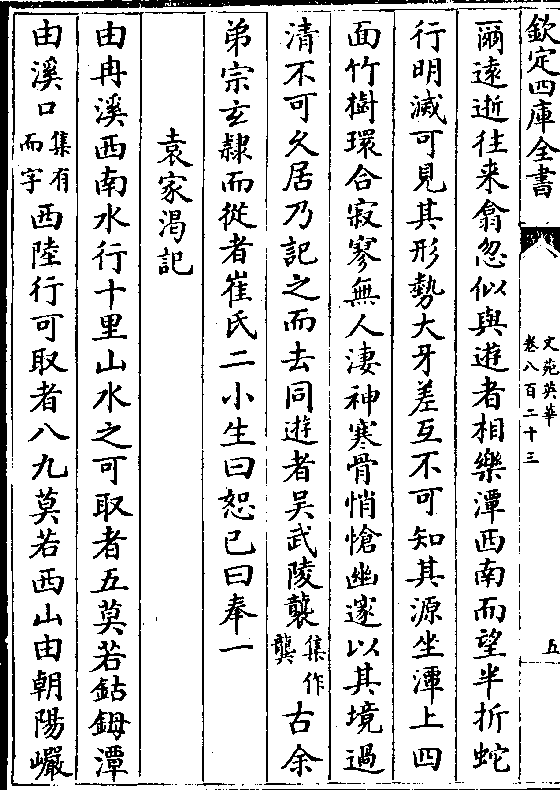 欽定四庫全書
文苑英華
卷八百二十三
五
爾遠逝往来翕忽似與遊者相樂潭西南而望半折蛇
行明滅可見其形勢犬牙差互不可知其源坐潭上四
面竹樹環合寂寥無人淒神寒骨悄愴幽邃以其境過
清不可乆居乃記之而去同遊者吴武陵襲集作龔古余
弟宗玄隸而從者崔氏二小生曰恕已曰奉一
袁家渴記
由冉溪西南水行十里山水之可取者五莫若鈷鉧潭
由溪口集有而字西陸行可取者八九莫若西山由朝陽巗